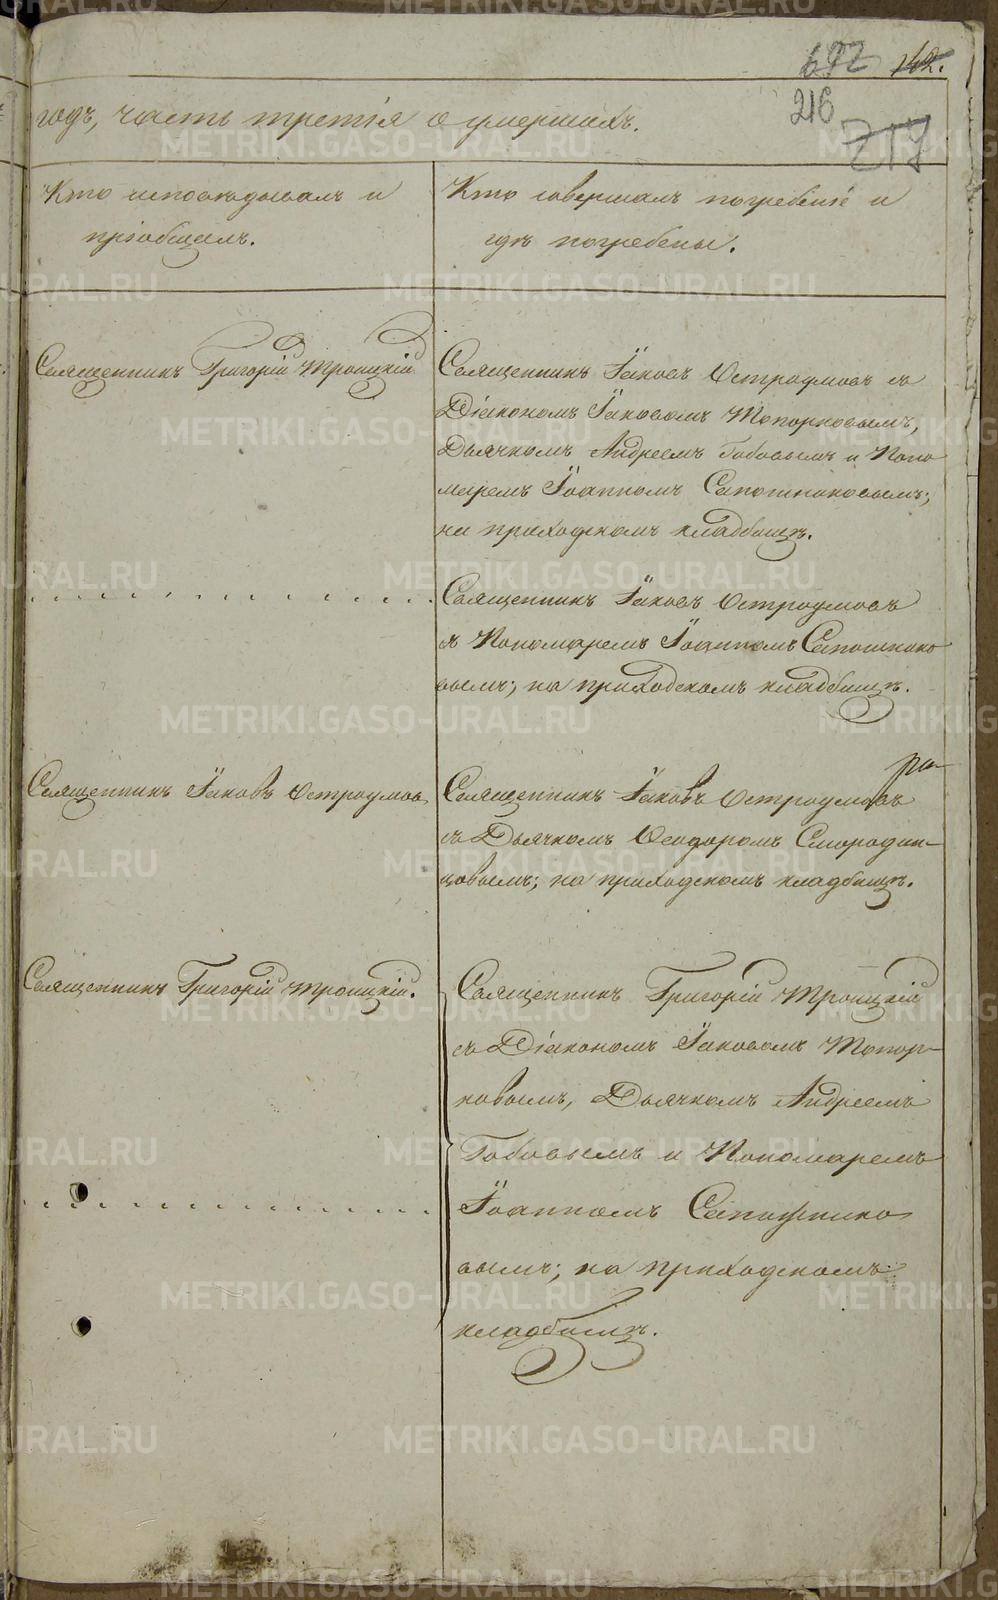 672 142.
годъ, часть третія о умершихъ.
216
217
Кто исповѣдывалъ и
пріобщалъ.
Кто совершалъ погребеніе и
гдѣ погребены.
Священникъ Григорій Троицкій
Священникъ Іаковъ Остроумовъ съ
Діакономъ Іаковомъ Топорковымъ,
Дьячкомъ Андреемъ Бобовымъ и Поно
маремъ Іоанномъ Сапожниковымъ;
на приходскомъ кладбищѣ.
Священникъ Іаковъ Остроумовъ
съ Пономаремъ Іоанномъ Сапожнико
вымъ; на приходскомъ кладбищѣ.
ра-
Священникъ Іаковъ Остроумов
Священникъ Іаковъ Остроумовъ
съ Дьячкомъ Ѳеодоромъ Смородин-
цовымъ; на приходскомъ кладбищѣ.
Священникъ Григорій Троицкій.
Священникъ Григорій Троицкій
съ Діакономъ Іаковомъ Топор-
ковымъ, Дьячкомъ Андреемъ
Бобовымъ и Пономаремъ
Іоанномъ Сапожнико
вымъ; на приходскомъ
кладбищѣ.
METRIKI.GASO-URAL.RU